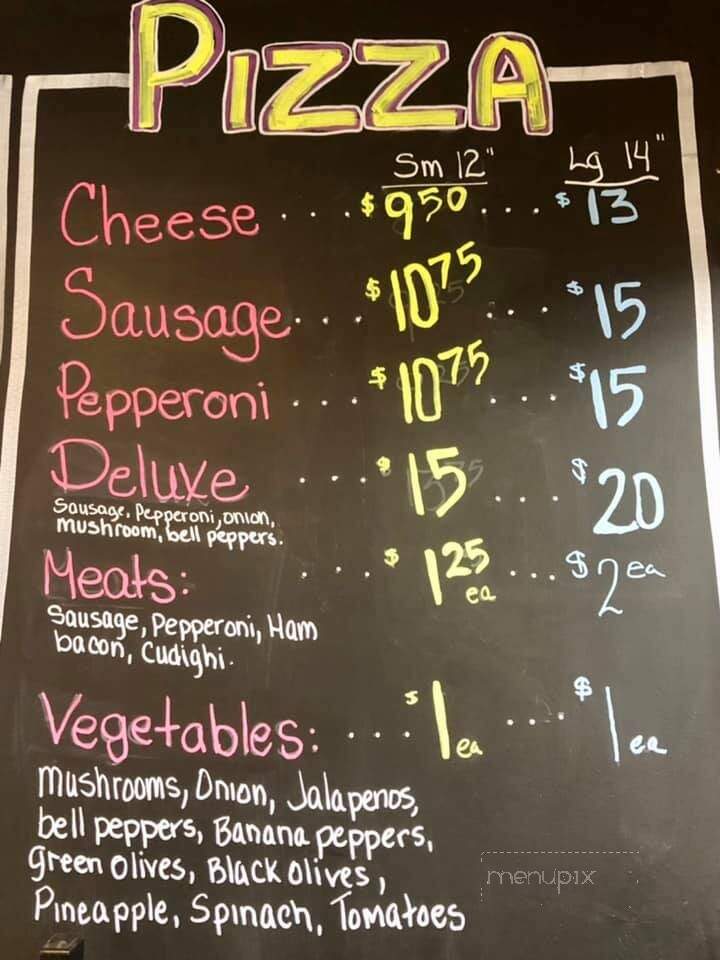 PIZZA
Sm 12" Lg 14"
Cheese .... $ 9.50 .... $ 13
Sausage... $ 10.75 ... $ 15
Pepperoni ... $ 10.75 ... $ 15
Deluxe ... $ 15 ... $ 20
Sausage, Pepperoni, onion,
mushroom, bell peppers.
Meats: ... $ 1.25 ea ... $ 2 ea
Sausage, Pepperoni, Ham
bacon, Cudighi.
Vegetables: ... $ 1 ea ... $ 1 ea
Mushrooms, Onion, Jalapenos,
bell peppers, Banana peppers,
green olives, Black olives,
Pineapple, Spinach, Tomatoes
menupix